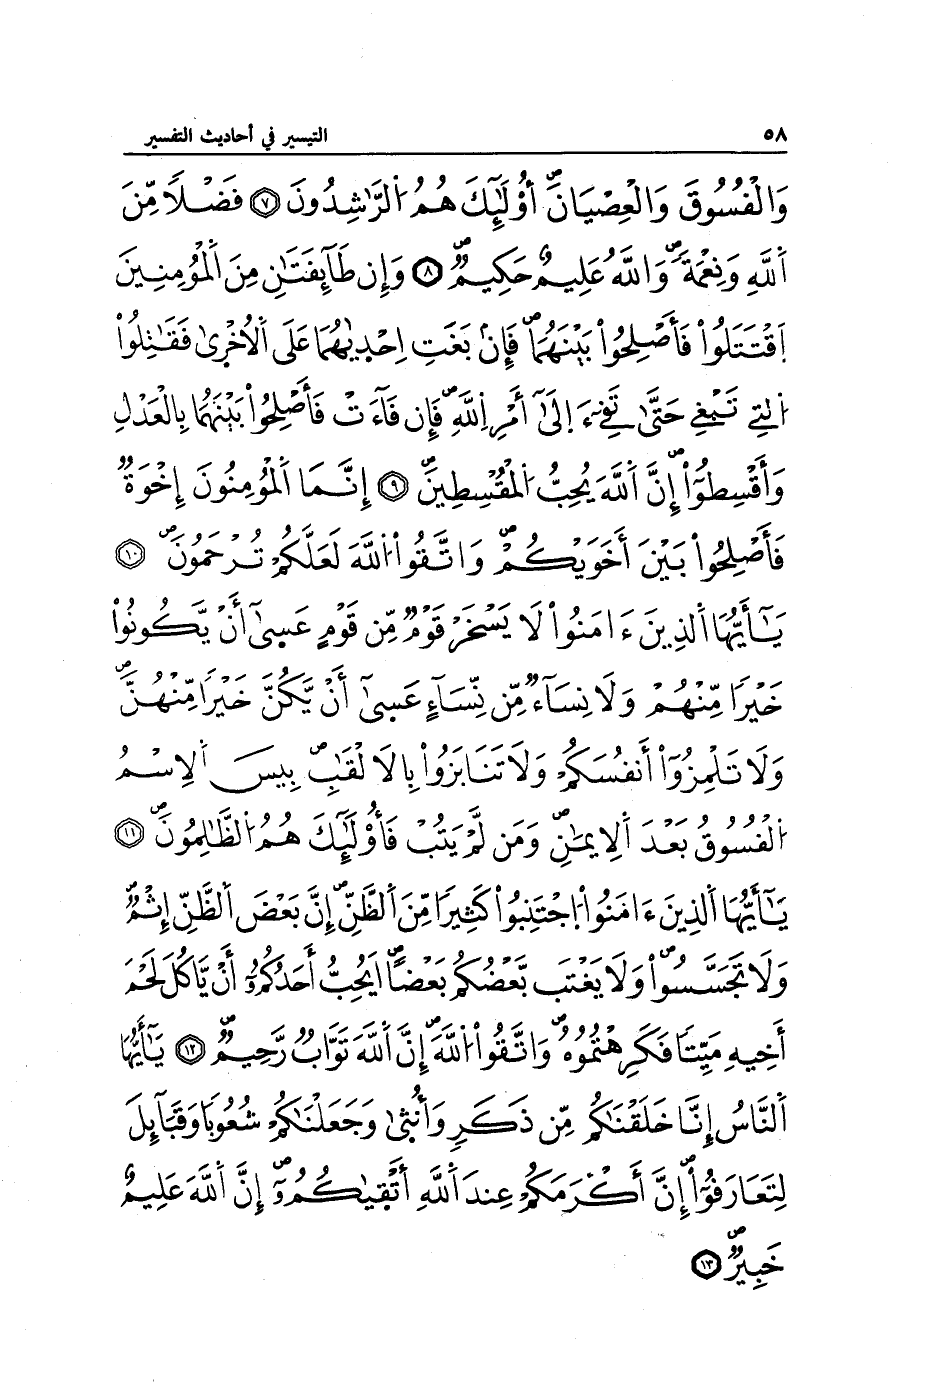 ٥٨ التيسير في أحاديث التفسير
وَالْفُسُوقَ وَالْعِصْيَانَۖ أُوْلَٰٓئِكَ هُمُ اُ۬لرَّٰشِدُونَ ٧ فَضْلاٗ مِّنَ
اَ۬للَّهِ وَنِعْمَةٗۖ وَاللَّهُ عَلِيمٌ حَكِيمٞۖ ٨ وَإِن طَآئِفَتَٰنِ مِنَ اَ۬لْمُؤْمِنِينَ
اَ۪قْتَتَلُواْ فَأَصْلِحُواْ بَيْنَهُمَاۖ فَإِنۢ بَغَتِ اِحْدَيٰهُمَا عَلَى اَ۬لُاخْرَىٰ فَقَٰتِلُواْ
اُ۬لتِے تَبْغِے حَتَّىٰ تَفِےٓءَ اِلَىٰٓ أَمْرِ اِ۬للَّهِۖ فَإِن فَآءَتْ فَأَصْلِحُواْ بَيْنَهُمَا بِالْعَدْلِ
وَأَقْسِطُوٓاْۖ إِنَّ اَ۬للَّهَ يُحِبُّ اُ۬لْمُقْسِطِينَۖ ٩ إِنَّمَا اَ۬لْمُؤْمِنُونَ إِخْوَةٞ
فَأَصْلِحُواْ بَيْنَ أَخَوَيْكُمْۖ وَاتَّقُواْ اُ۬للَّهَ لَعَلَّكُمْ تُرْحَمُونَۖ ١٠
يَٰٓأَيُّهَا اَ۬لذِينَ ءَامَنُواْ لَا يَسْخَرْ قَوْمٞ مِّن قَوْمٍ عَسَىٰٓ أَنْ يَّكُونُواْ
خَيْراٗ مِّنْهُمْ وَلَا نِسَآءٞ مِّن نِّسَآءٍ عَسَىٰٓ أَنْ يَّكُنَّ خَيْراٗ مِّنْهُنَّۖ
وَلَا تَلْمِزُوٓاْ أَنفُسَكُمْ وَلَا تَنَابَزُواْ بِالَالْقَٰبِۖ بِيسَ اَ۬لِاسْمُ
اُ۬لْفُسُوقُ بَعْدَ اَ۬لِايمَٰنِۖ وَمَن لَّمْ يَتُبْ فَأُوْلَٰٓئِكَ هُمُ اُ۬لظَّٰلِمُونَۖ ١١
يَٰٓأَيُّهَا اَ۬لذِينَ ءَامَنُواْ اُ۪جْتَنِبُواْ كَثِيراٗ مِّنَ اَ۬لظَّنِّۖ إِنَّ بَعْضَ اَ۬لظَّنِّ إِثْمٞ
وَلَا تَجَسَّسُواْۖ وَلَا يَغْتَب بَّعْضُكُم بَعْضاًۖ اَيُحِبُّ أَحَدُكُمُۥٓ أَنْ يَّاكُلَ لَحْمَ
أَخِيهِ مَيِّتاٗ فَكَرِهْتُمُوهُۖ وَاتَّقُواْ اُ۬للَّهَۖ إِنَّ اَ۬للَّهَ تَوَّابٞ رَّحِيمٞۖ ١٢ يَٰٓأَيُّهَا
اَ۬لنَّاسُ إِنَّا خَلَقْنَٰكُم مِّن ذَكَرٍ وَأُنثَىٰ وَجَعَلْنَٰكُمْ شُعُوباٗ وَقَبَآئِلَ
لِتَعَارَفُوٓاْۖ إِنَّ أَكْرَمَكُمْ عِندَ اَ۬للَّهِ أَتْقَيٰكُمُۥٓۖ إِنَّ اَ۬للَّهَ عَلِيمٌ
خَبِيرٞۖ ١٣